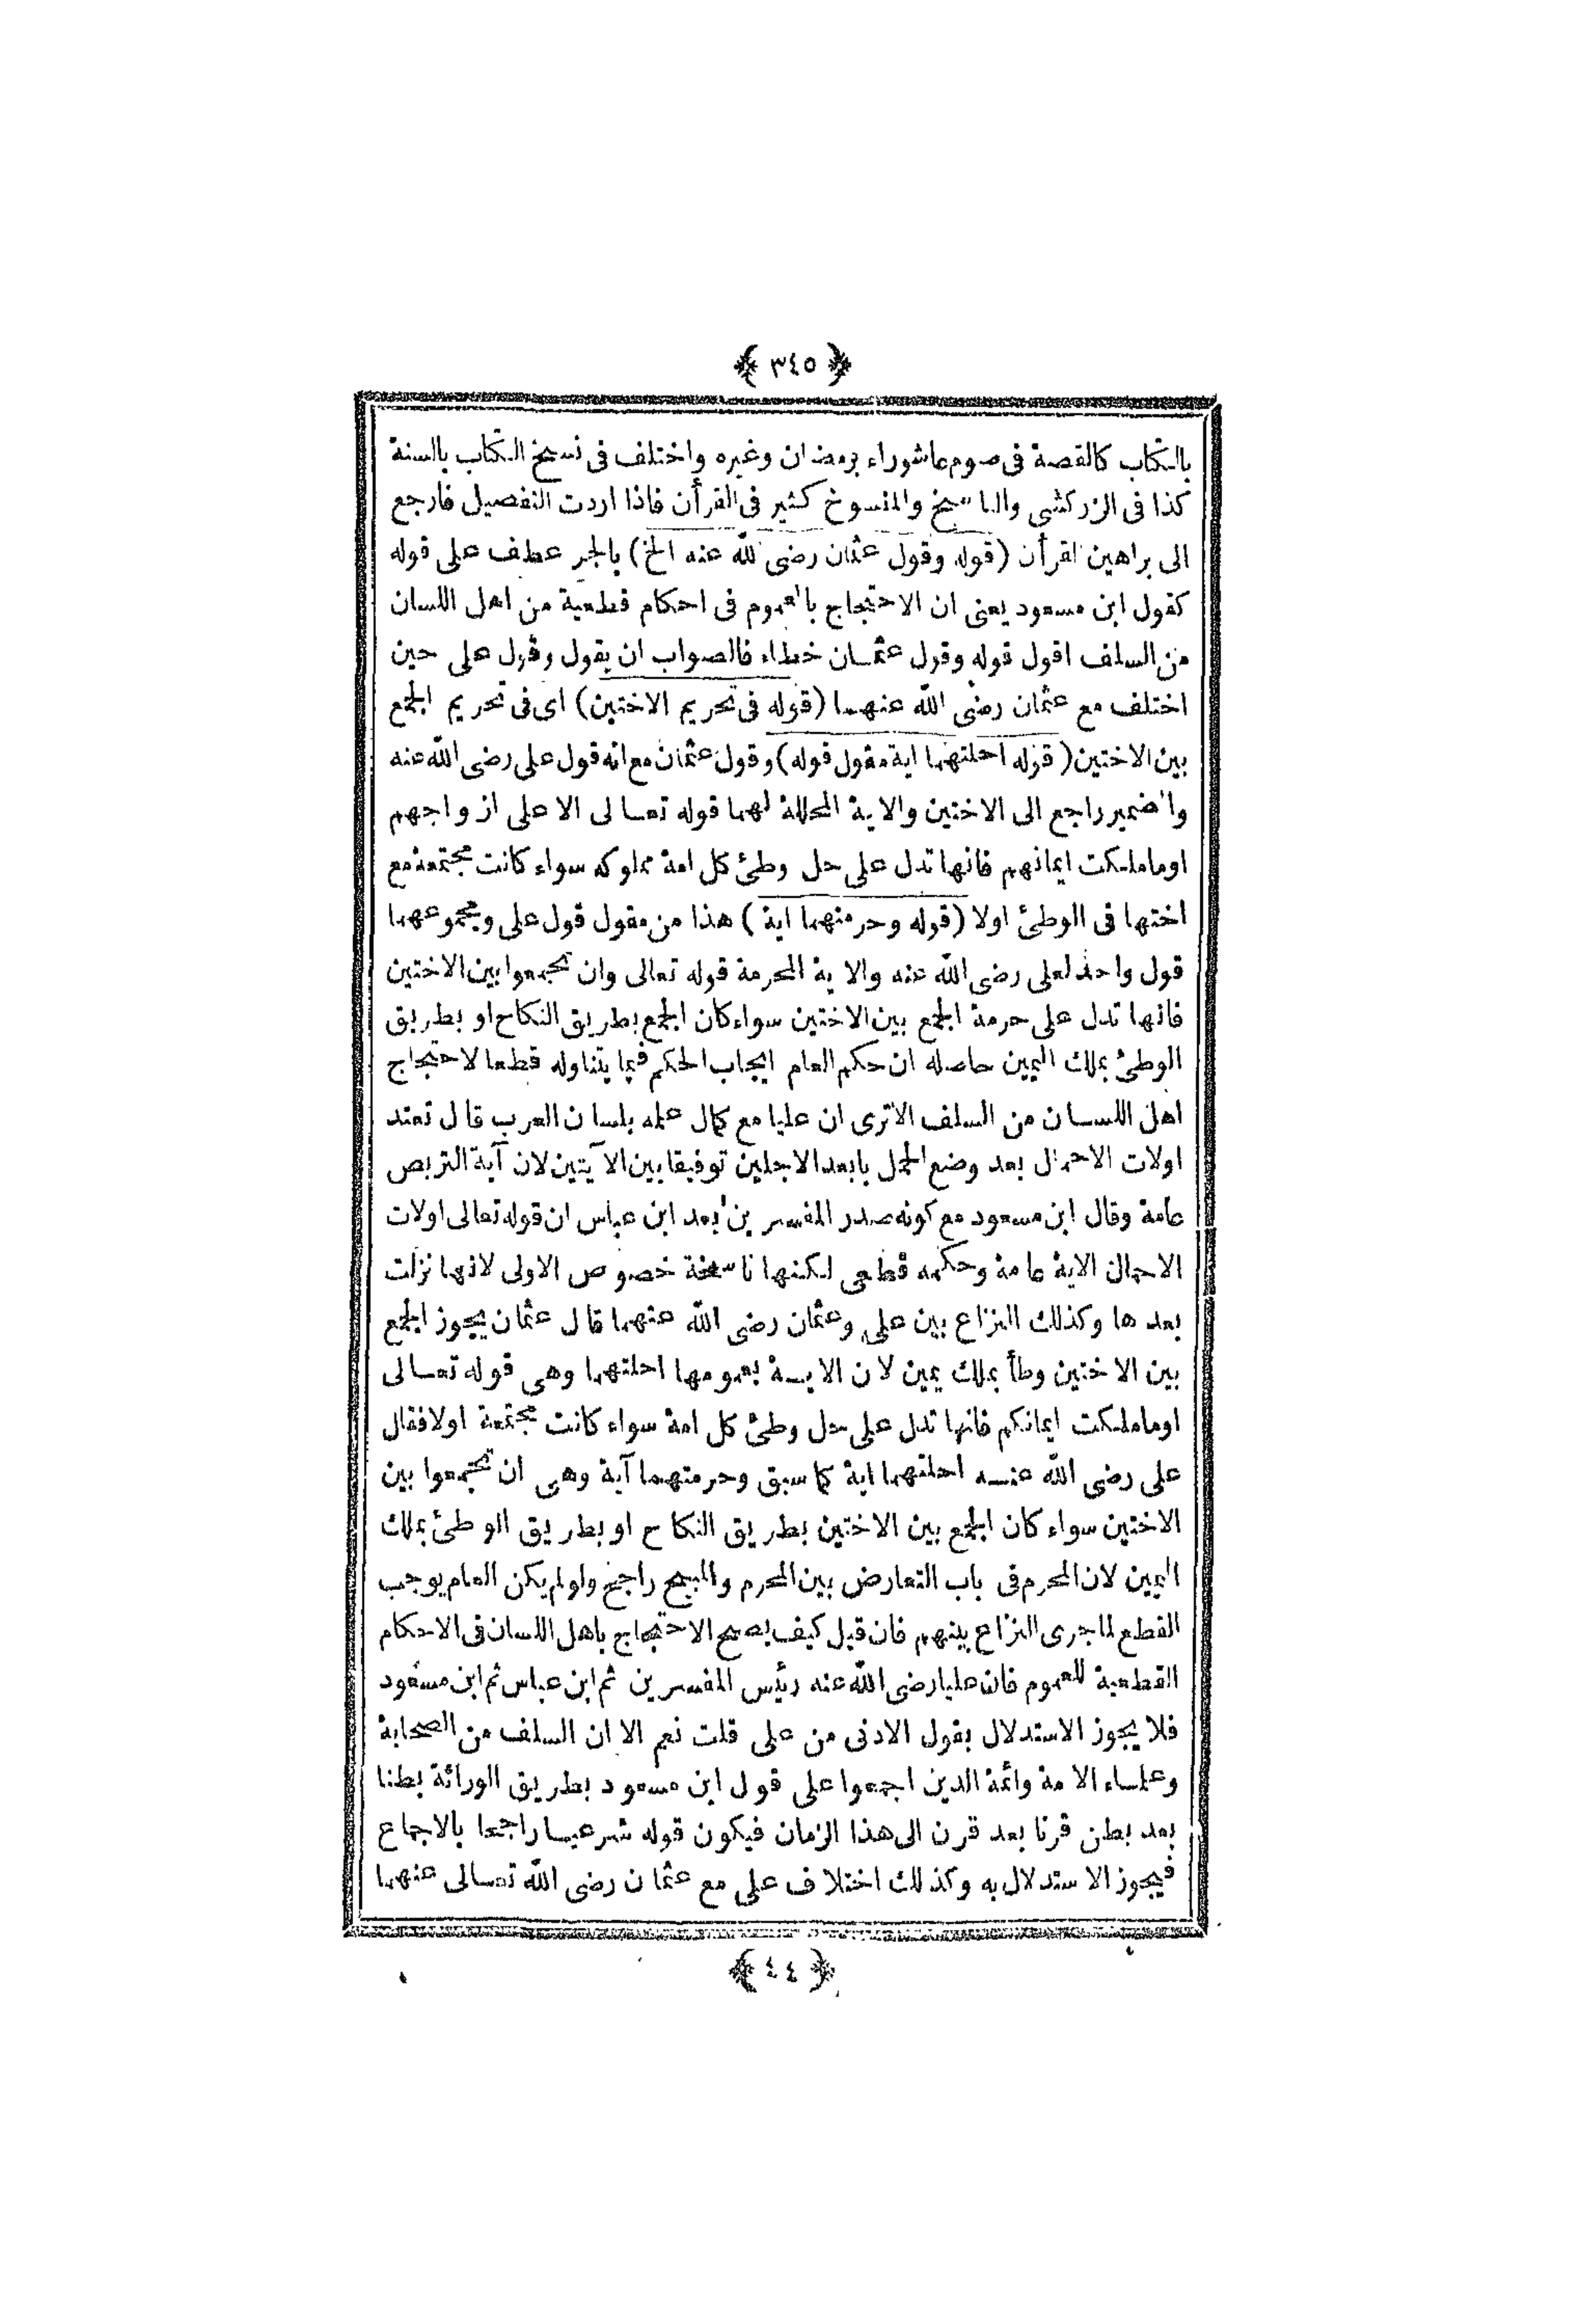 ﴿ ٣٤٥ ﴾
بالكتاب كالقصة فى صوم عاشوراء برمضان وغيره واختلف فى نسخ الكتاب بالسنة
كذا فى الزركشى والناسخ والمنسوخ كثير فى القرأن فاذا اردت التفصيل فارجع
الى براهين القرأن (قوله وقول عثمان رضى الله عنه الخ) بالجر عطف على قوله
كقول ابن مسعود يعنى ان الاحتجاج بالعموم فى احكام قطعية من اهل اللسان
من السلف اقول قوله وقول عثمان خطاء فالصواب ان يقول وقول على حين
اختلف مع عثمان رضى الله عنهما (قوله فى تحريم الاختين) اى فى تحريم الجمع
بين الاختين (قوله احلتهما اية مقول قوله) وقول عثمان مع انه قول على رضى الله عنه
والضمير راجع الى الاختين والاية المحللة لهما قوله تعالى الا على ازواجهم
اوماملكت ايمانهم فانها تدل على حل وطئ كل امة مملوكه سواء كانت مجتمعة مع
اختها فى الوطئ اولا (قوله وحرمتهما اية) هذا من مقول قول على ومجموعهما
قول واحد لعلى رضى الله عنه والاية المحرمة قوله تعالى وان تجمعوا بين الاختين
فانها تدل على حرمة الجمع بين الاختين سواء كان الجمع بطريق النكاح او بطريق
الوطئ بملك اليمين حاصله ان حكم العام ايجاب الحكم فيما يتناوله قطعا لاحتجاج
اهل اللسان من السلف الاترى ان عليا مع كمال علمه بلسان العرب قال تعتد
اولات الاحمال بعد وضع الحمل بابعد الاجلين توفيقا بين الآيتين لان آية التربص
عامة وقال ابن مسعود مع كونه صدر المفسرين بعد ابن عباس ان قوله تعالى اولات
الاحمال الاية عامة وحكمه قطعى لكنها ناسخة خصوص الاولى لانها نزلت
بعدها وكذلك النزاع بين على وعثمان رضى الله عنهما قال عثمان يجوز الجمع
بين الاختين وطأ بملك يمين لان الاية بعمومها احلتهما وهى قوله تعالى
اوماملكت ايمانكم فانها تدل على حل وطئ كل امة سواء كانت مجتمعة اولا فقال
على رضى الله عنه احلتهما اية كما سبق وحرمتهما آية وهى ان تجمعوا بين
الاختين سواء كان الجمع بين الاختين بطريق النكاح او بطريق الوطئ بملك
اليمين لان المحرم فى باب التعارض بين المحرم والمبيح راجح ولو لم يكن العام يوجب
القطع لما جرى النزاع بينهم فان قيل كيف يصح الاحتجاج باهل اللسان فى الاحكام
القطعية للعموم فان عليا رضى الله عنه رئيس المفسرين ثم ابن عباس ثم ابن مسعود
فلا يجوز الاستدلال بقول الادنى من على قلت نعم الا ان السلف من الصحابة
وعلماء الامة وائمة الدين اجمعوا على قول ابن مسعود بطريق الوراثة بطنا
بعد بطن قرنا بعد قرن الى هذا الزمان فيكون قوله شرعيا راجحا بالاجماع
فيجوز الاستدلال به وكذلك اختلاف على مع عثمان رضى الله تعالى عنهما
﴿ ٤٤ ﴾